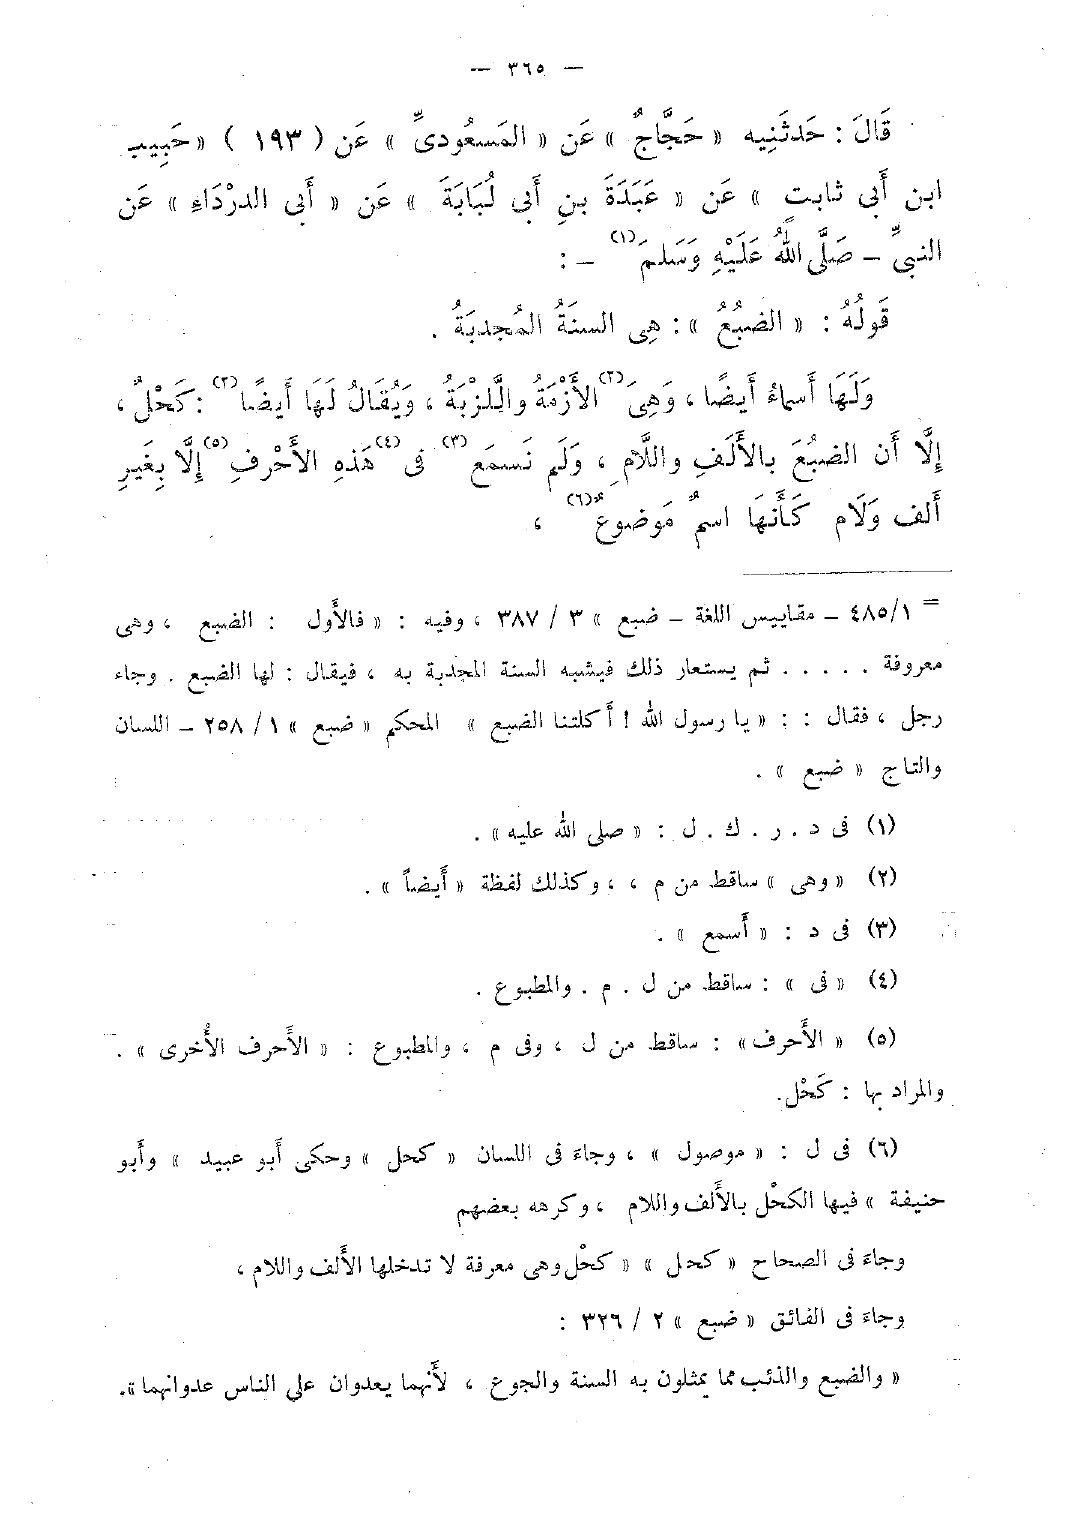 — ٣٦٥ —
قَالَ : حَدثَنِيه « حَجَّاجٌ » عَن « المَسعُودىِّ » عَن ( ١٩٣ ) « حَبِيب
ابن أَبى ثابتٍ » عَن « عَبَدَةَ بنِ أَبى لُبَابَةَ » عَن « أَبى الدرْدَاءِ » عَن
النبىِّ – صَلَّى اللهُ عَلَيْهِ وَسَلمَ (١) – :
قَولُهُ : « الضبُعُ » : هِى السنَةُ المُجدبَةُ .
وَلَهَا أَسماءُ أَيضًا ، وَهِىَ (٢) الأَزْمَةُ والَّلزْبَةُ ، وَيُقَالُ لَهَا أَيضًا (٢) : كَحْلٌ ،
إِلَّا أَن الضبُعَ بالأَلَفِ واللَّامِ ، وَلَم نَسمَع (٣) فى (٤) هَذهِ الأَحْرفِ (٥) إِلَّا بِغَيرِ
أَلف وَلَام كَأَنهَا اسمٌ مَوضوعٌ (٦) ،
= ٤٨٥/١ – مقاييس اللغة – ضبع » ٣ / ٣٨٧ ، وفيه : « فالأَول : الضبع ، وهى
معروفة . . . . . ثم يستعار ذلك فيشبه السنة المجدبة به ، فيقال : لها الضبع . وجاء
رجل ، فقال : : « يا رسول الله ! أَكلتنا الضبع » المحكم « ضبع » ١ / ٢٥٨ – اللسان
والتاج « ضبع » .
(١) فى د . ر . ك . ل : « صلى الله عليه » .
(٢) « وهى » ساقط من م ، ، وكذلك لفظة « أَيضاً » .
(٣) فى د : « أَسمع » .
(٤) « فى » : ساقط من ل . م . والمطبوع .
(٥) « الأَحرف » : ساقط من ل ، وفى م ، والمطبوع : « الأَحرف الأُخرى » .
والمراد بها : كَحْل.
(٦) فى ل : « موصول » ، وجاءَ فى اللسان « كحل » وحكى أَبو عبيد » وأَبو
حنيفة » فيها الكحْل بالأَلف واللام ، وكرهه بعضهم
وجاءَ فى الصحاح « كحل » « كحْل وهى معرفة لا تدخلها الأَلف واللام ،
وجاءَ فى الفائق « ضبع » ٢ / ٣٢٦ :
« والضبع والذئب مما يمثلون به السنة والجوع ، لأَنهما يعدوان على الناس عدوانهما ».